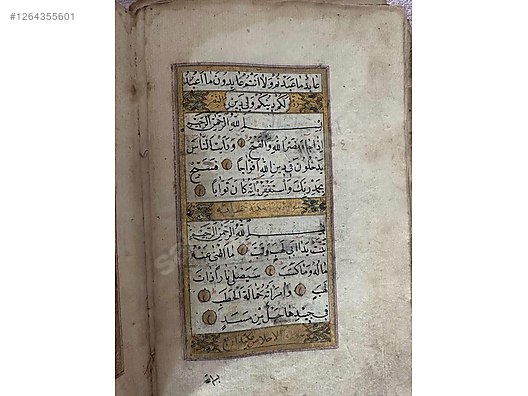 #1264355601
عابد ما عبدتم ولا انتم عابدون ما اعبد
لكم دينكم ولي دين
بسم الله الرحمن الرحيم
اذا جاء نصر الله والفتح ورايت الناس
يدخلون في دين الله افواجا فسبح
بحمد ربك واستغفره انه كان توابا
بسم الله الرحمن الرحيم
تبت يدا ابي لهب وتب ما اغنى عنه
ماله وما كسب سيصلى نارا ذات
لهب وامراته حمالة الحطب
في جيدها حبل من مسد
سورة الاخلاص